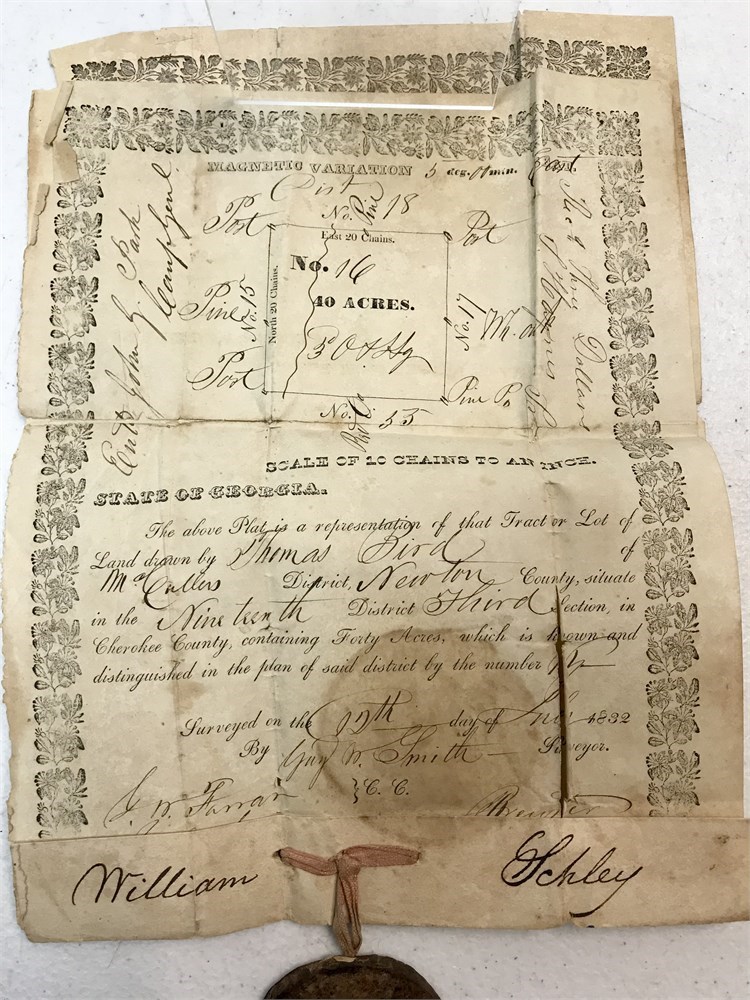 MAGNETIC VARIATION 5 deg. min. East.
Dist
No. 18
Pine
Post
Post
East 20 Chains.
No. 16
40 ACRES.
3d
North 20 Chains.
No. 15
Pine
No. 17
Post
Pine
No. 55
SCALE OF 10 CHAINS TO AN INCH.
STATE OF GEORGIA.
The above Plat is a representation of that Tract or Lot of
Land drawn by Thomas Bird of
McCullers District, Newton County, situate
in the Nineteenth District Third Section, in
Cherokee County, containing Forty Acres, which is known and
distinguished in the plan of said district by the number
Surveyed on the day of 1832
By Guy W. Smith Surveyor.
J. W. Farrar
C. C.
William Schley
John G. Park
Dollars